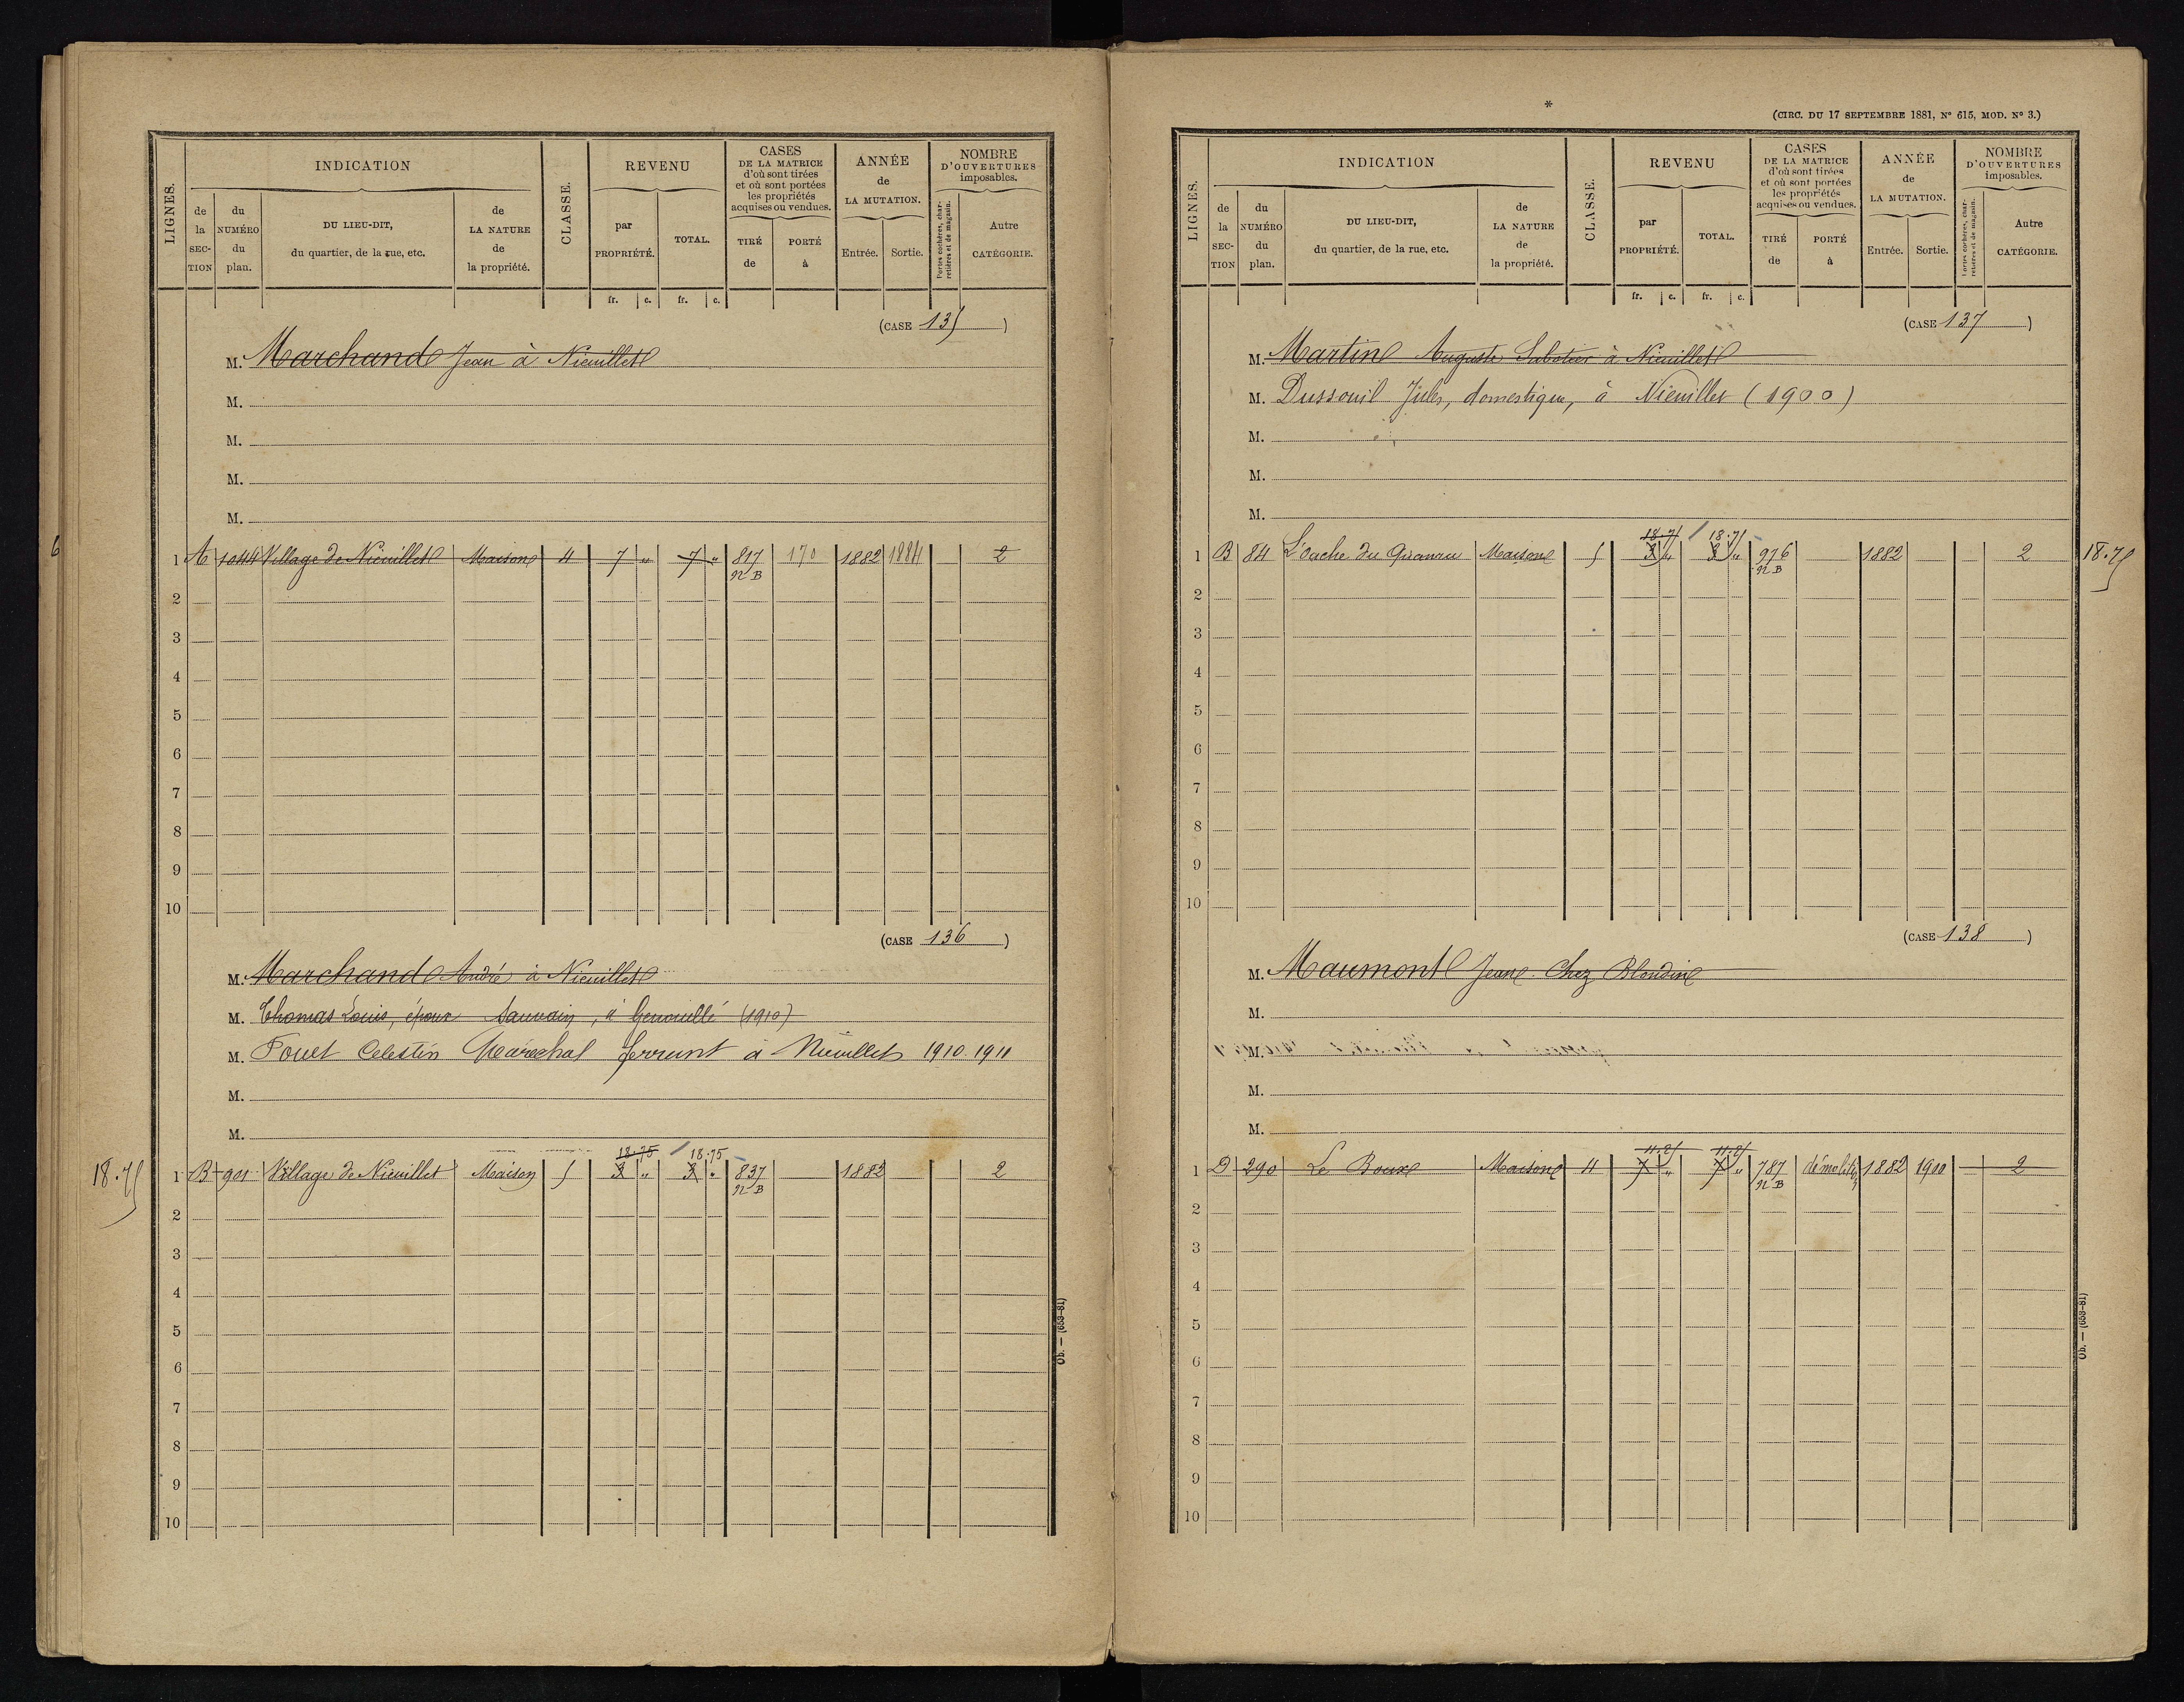 LIGNES.
INDICATION
CLASSE.
REVENU
CASES
DE LA MATRICE
d'où sont tirées
et où sont portées
les propriétés
acquises ou vendues.
ANNÉE
de
LA MUTATION.
NOMBRE
D'OUVERTURES
imposables.
de la SECTION
du NUMÉRO du plan.
DU LIEU-DIT,
du quartier, de la rue, etc.
de LA NATURE de la propriété.
par PROPRIÉTÉ.
TOTAL.
TIRÉ de
PORTÉ à
Entrée.
Sortie.
Portes cochères, charretières et de magasin.
Autre CATÉGORIE.
fr. c. fr. c.
(CASE 135)
M. Marchand Jean à Nieuillet
M.
M.
M.
M.
1 A 1044 Village de Nieuillet Maison 4 7 " 7 " 817 NB 170 1882 1884 2
2
3
4
5
6
7
8
9
10
(CASE 136)
M. Marchand André à Nieuillet
M. Thomas Louis, époux Sauvain, à Genouillé (1910)
M. Pouet Celestin Marechal ferrant à Nieuillet 1910-1911
M.
M.
18.75 18.75
18.75 1 B 901 Village de Nieuillet Maison 5 3 " 3 " 837 NB 1882 2
2
3
4
5
6
7
8
9
10
Ob. — (653-81)
6
*
(CIRC. DU 17 SEPTEMBRE 1881, N° 615, MOD. N° 3.)
LIGNES.
INDICATION
CLASSE.
REVENU
CASES
DE LA MATRICE
d'où sont tirées
et où sont portées
les propriétés
acquises ou vendues.
ANNÉE
de
LA MUTATION.
NOMBRE
D'OUVERTURES
imposables.
de la SECTION
du NUMÉRO du plan.
DU LIEU-DIT,
du quartier, de la rue, etc.
de LA NATURE de la propriété.
par PROPRIÉTÉ.
TOTAL.
TIRÉ de
PORTÉ à
Entrée.
Sortie.
Portes cochères, charretières et de magasin.
Autre CATÉGORIE.
fr. c. fr. c.
(CASE 137)
M. Martin Auguste Sabotier à Nieuillet
M. Dussouil Jules, domestique, à Nieuillet (1900)
M.
M.
M.
18.75 18.75
1 B 84 L'ouche du Maison 5 3 " 3 " 976 NB 1882 2 18.75
2
3
4
5
6
7
8
9
10
(CASE 138)
M. Maumont Jean Chez Blondin
M.
M.
M.
M.
11.25 11.25
1 D 290 Le Maison 4 7 " 7 " 787 NB démolition 1882 1900 2
2
3
4
5
6
7
8
9
10
Ob. — (653-81)